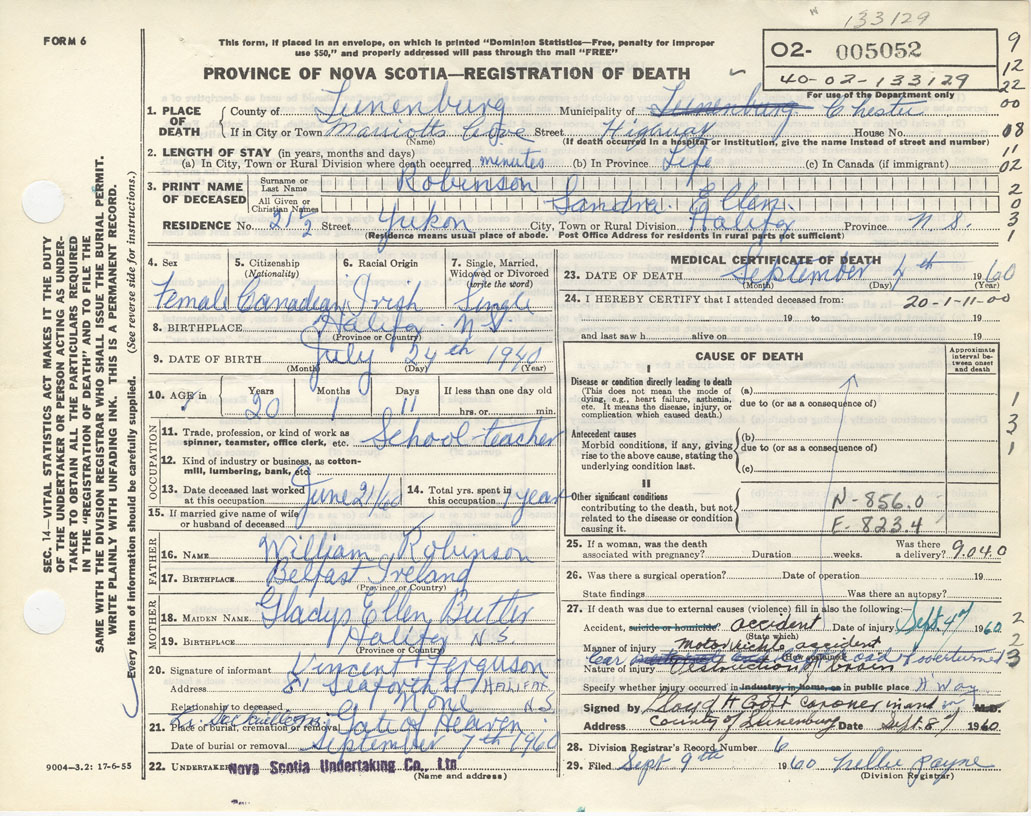 133129
FORM 6
This form, if placed in an envelope, on which is printed "Dominion Statistics—Free, penalty for improper
use $50," and properly addressed will pass through the mail "FREE"
02- 005052
40-02-133129
For use of the Department only
PROVINCE OF NOVA SCOTIA—REGISTRATION OF DEATH
9
12
22
00
08
11
02
2
0
3
1
1. PLACE OF DEATH
County of Lunenburg Municipality of Lunenburg Chester
If in City or Town Marriotts Cove Street Higway House No.
(Name) (If death occurred in a hospital or institution, give the name instead of street and number)
2. LENGTH OF STAY (in years, months and days)
(a) In City, Town or Rural Division where death occurred minutes (b) In Province Life (c) In Canada (if immigrant)
3. PRINT NAME OF DECEASED
Surname or Last Name Robinson
All Given or Christian Names Sandra Ellen
RESIDENCE No. 21 1/2 Street Yukon City, Town or Rural Division Halifax Province N S.
(Residence means usual place of abode. Post Office Address for residents in rural parts not sufficient)
4. Sex 5. Citizenship (Nationality) 6. Racial Origin 7. Single, Married, Widowed or Divorced (write the word)
Female Canadian Irish Single
8. BIRTHPLACE Halifax N.S.
(Province or Country)
9. DATE OF BIRTH July 24th 1940
(Month) (Day) (Year)
10. AGE in Years Months Days If less than one day old
20 1 11 hrs. or min.
OCCUPATION
11. Trade, profession, or kind of work as spinner, teamster, office clerk, etc. School teacher
12. Kind of industry or business, as cotton-mill, lumbering, bank, etc.
13. Date deceased last worked at this occupation June 21/60 14. Total yrs. spent in this occupation 1 year
15. If married give name of wife or husband of deceased
FATHER
16. NAME William Robinson
17. BIRTHPLACE Belfast Ireland
(Province or Country)
MOTHER
18. MAIDEN NAME Gladys Ellen Butler
19. BIRTHPLACE Halifax N S
(Province or Country)
20. Signature of informant Vincent Ferguson
Address 81 Seaforth St HALIFAX
Relationship to deceased None N S
21. Place of burial, cremation or removal Gate of Heaven
Date of burial or removal September 7th 1960
22. UNDERTAKER Nova Scotia Undertaking Co., Ltd
(Name and address)
MEDICAL CERTIFICATE OF DEATH
23. DATE OF DEATH September 4th 1960
(Month) (Day) (Year)
24. I HEREBY CERTIFY that I attended deceased from: 20-1-11-00
19 to 19
and last saw h alive on 19
CAUSE OF DEATH
Approximate interval between onset and death
I
Disease or condition directly leading to death
(This does not mean the mode of dying, e.g., heart failure, asthenia, etc. It means the disease, injury, or complication which caused death.)
(a)
due to (or as a consequence of)
Antecedent causes
Morbid conditions, if any, giving rise to the above cause, stating the underlying condition last.
(b)
due to (or as a consequence of)
(c)
1
3
1
II
Other significant conditions
contributing to the death, but not related to the disease or condition causing it.
N-856.0
E-823.4
25. If a woman, was the death associated with pregnancy? Duration weeks. Was there a delivery? 904.0
26. Was there a surgical operation? Date of operation 19
State findings Was there an autopsy?
27. If death was due to external causes (violence) fill in also the following:—
Accident, suicide or homicide? accident Date of injury Sept 4th 1960
(State which)
Manner of injury Motor vehicle accident
Car road & overturned
Nature of injury
Specify whether injury occurred in industry, in home, or in public place H'Way
2
2
3
Signed by coroner in and for M.D.
Address County of Lunenburg Date Sept. 8th 1960
28. Division Registrar's Record Number 6
29. Filed Sept 9th 1960 Nellie Payne
(Division Registrar)
SEC. 14—VITAL STATISTICS ACT MAKES IT THE DUTY
OF THE UNDERTAKER OR PERSON ACTING AS UNDER-
TAKER TO OBTAIN ALL THE PARTICULARS REQUIRED
IN THE "REGISTRATION OF DEATH" AND TO FILE THE
SAME WITH THE DIVISION REGISTRAR WHO SHALL ISSUE THE BURIAL PERMIT.
WRITE PLAINLY WITH UNFADING INK. THIS IS A PERMANENT RECORD.
Every item of information should be carefully supplied. (See reverse side for instructions.)
9004-3.2: 17-6-55